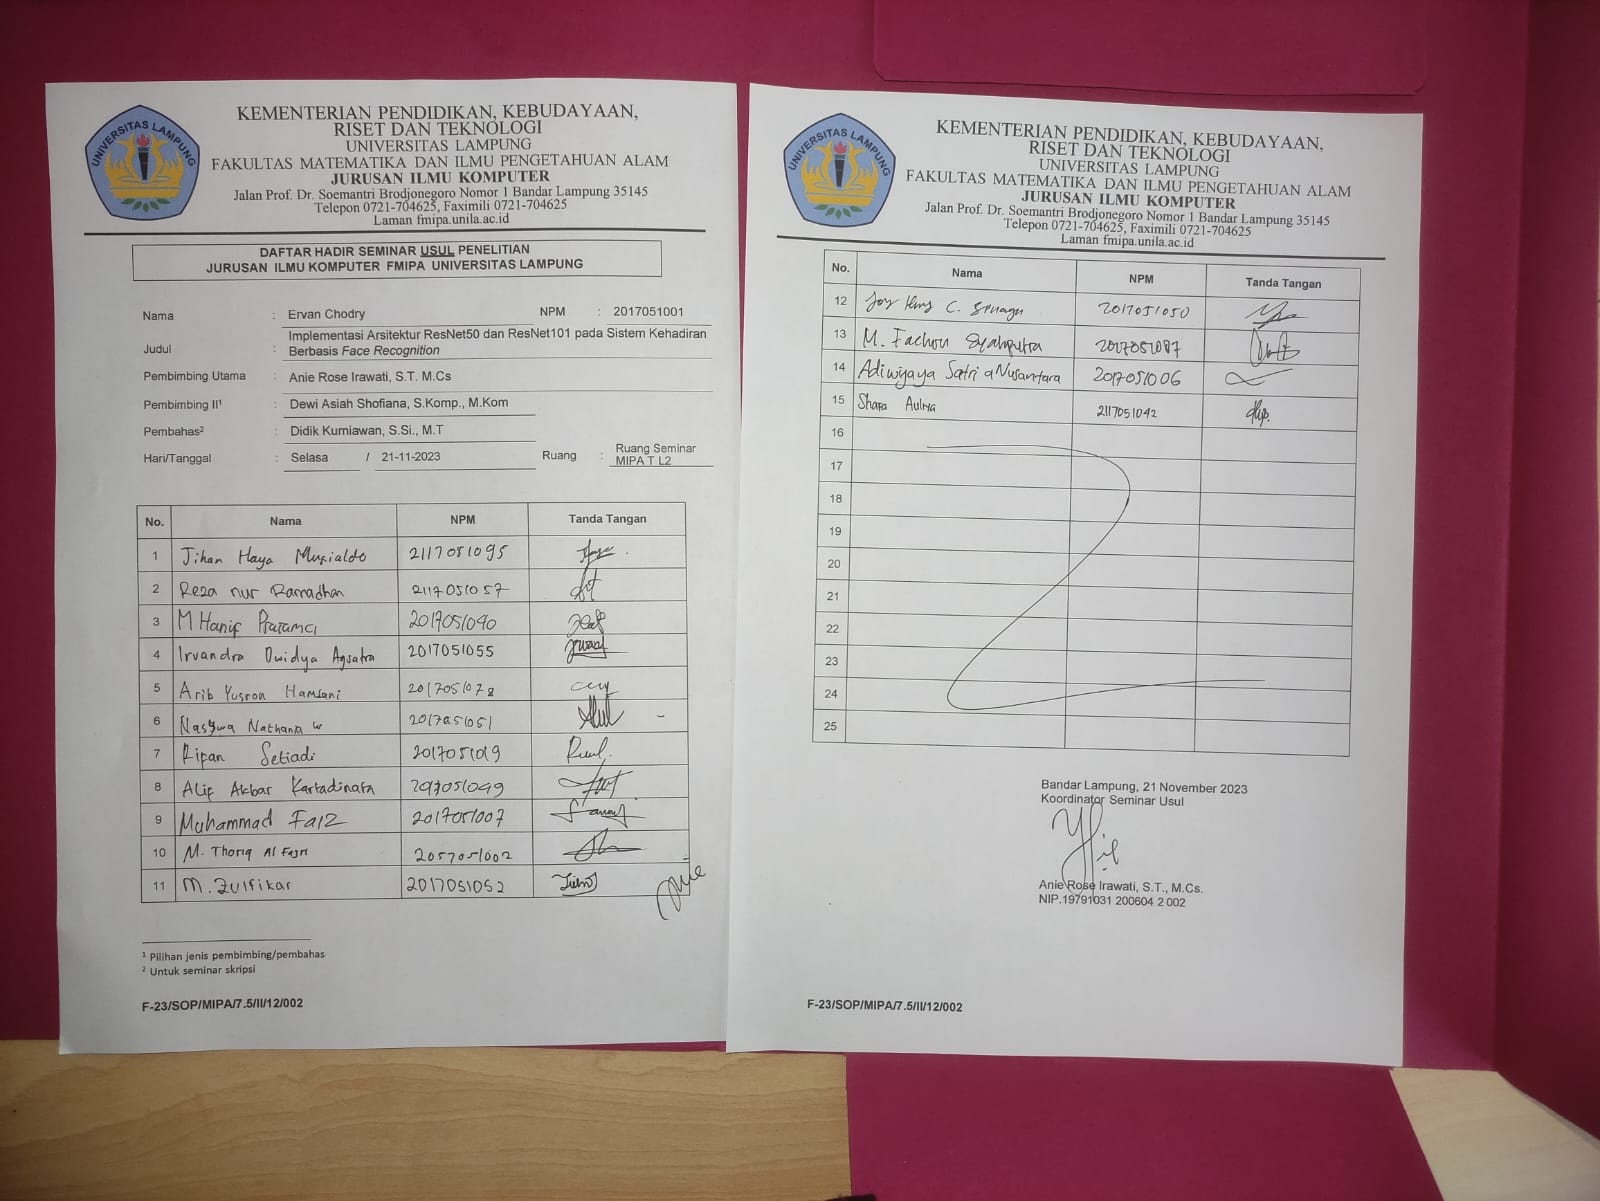 UNIVERSITAS LAMPUNG
KEMENTERIAN PENDIDIKAN, KEBUDAYAAN,
RISET DAN TEKNOLOGI
UNIVERSITAS LAMPUNG
FAKULTAS MATEMATIKA DAN ILMU PENGETAHUAN ALAM
JURUSAN ILMU KOMPUTER
Jalan Prof. Dr. Soemantri Brodjonegoro Nomor 1 Bandar Lampung 35145
Telepon 0721-704625, Faximili 0721-704625
Laman fmipa.unila.ac.id
DAFTAR HADIR SEMINAR USUL PENELITIAN
JURUSAN ILMU KOMPUTER FMIPA UNIVERSITAS LAMPUNG
Nama : Ervan Chodry NPM : 2017051001
Judul : Implementasi Arsitektur ResNet50 dan ResNet101 pada Sistem Kehadiran
Berbasis Face Recognition
Pembimbing Utama : Anie Rose Irawati, S.T. M.Cs
Pembimbing II¹ : Dewi Asiah Shofiana, S.Komp., M.Kom
Pembahas² : Didik Kurniawan, S.Si., M.T
Hari/Tanggal : Selasa / 21-11-2023 Ruang : Ruang Seminar
MIPA T L2
No. Nama NPM Tanda Tangan
1 Jihan Haya Musialdo 2117051095
2 Reza nur Ramadhan 2117051057
3 M Hanif Pratama 2017051040
4 Irvandra Dwidya Agsatra 2017051055
5 Arib Yusron Hamsani 2017051078
6 Nasywa Nathania W 2017051051
7 Ripan Setiadi 2017051019
8 Alif Akbar Kartadinata 2017051049
9 Muhammad Faiz 2017051007
10 M. Thoriq Al Fajri 2057051002
11 M. Zulfikar 2017051052
¹ Pilihan jenis pembimbing/pembahas
² Untuk seminar skripsi
F-23/SOP/MIPA/7.5/II/12/002
UNIVERSITAS LAMPUNG
KEMENTERIAN PENDIDIKAN, KEBUDAYAAN,
RISET DAN TEKNOLOGI
UNIVERSITAS LAMPUNG
FAKULTAS MATEMATIKA DAN ILMU PENGETAHUAN ALAM
JURUSAN ILMU KOMPUTER
Jalan Prof. Dr. Soemantri Brodjonegoro Nomor 1 Bandar Lampung 35145
Telepon 0721-704625, Faximili 0721-704625
Laman fmipa.unila.ac.id
No. Nama NPM Tanda Tangan
12 Joy C. 2017051050
13 M. Fachou Syahputra 2017051087
14 Adiwijaya Satria Nusantara 2017051006
15 Shara Auliya 2117051042
16
17
18
19
20
21
22
23
24
25
Bandar Lampung, 21 November 2023
Koordinator Seminar Usul
Anie Rose Irawati, S.T., M.Cs.
NIP.19791031 200604 2 002
F-23/SOP/MIPA/7.5/II/12/002